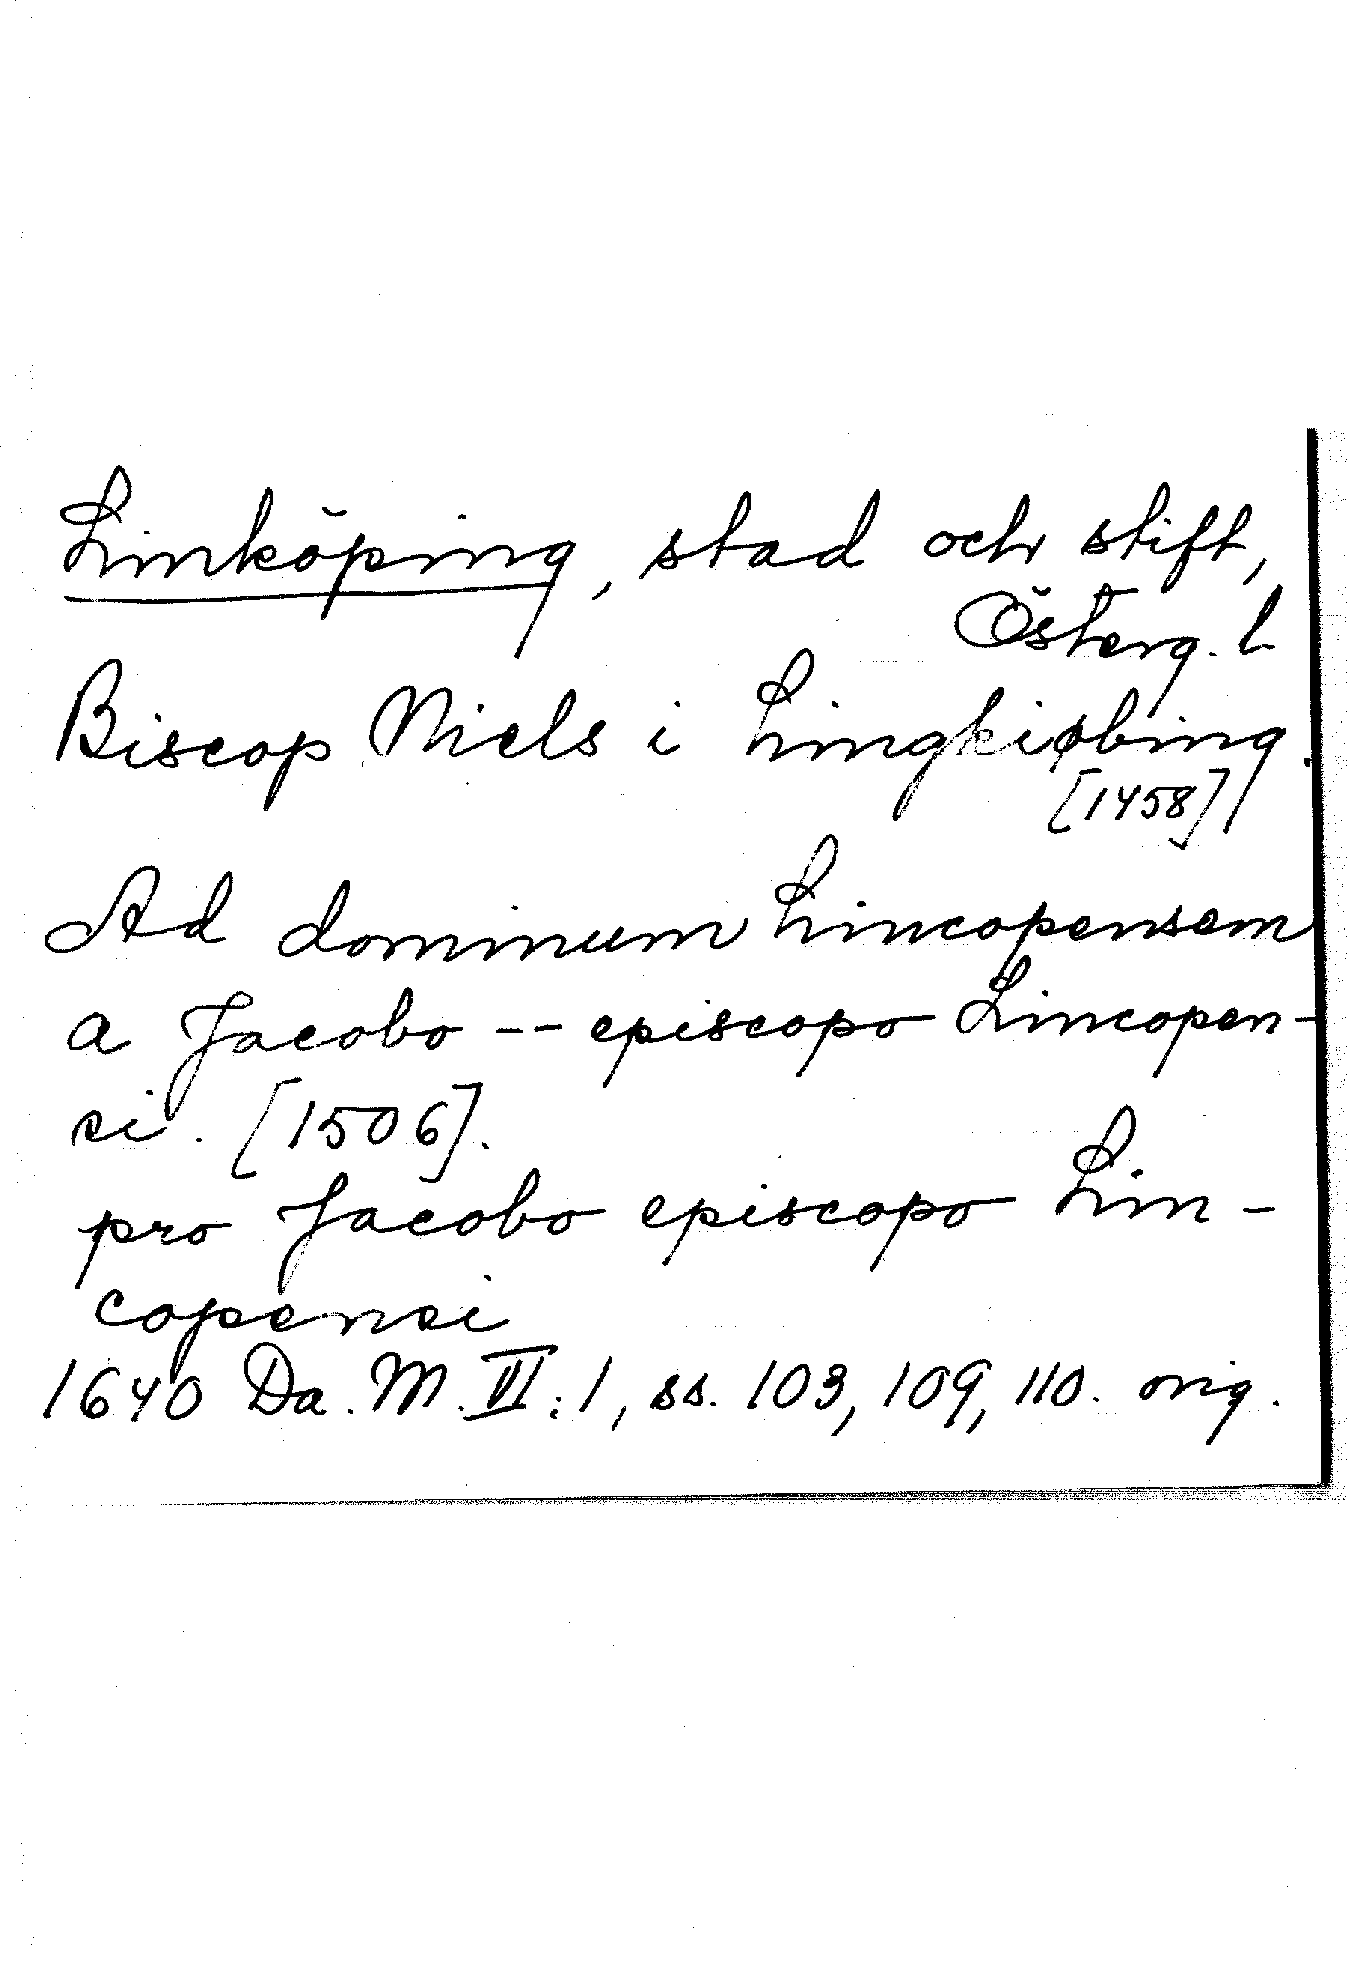 Linköping, stad och stift,
Österg. l.
Biscop Niels i Lingkiøbing.
[1458]
Ad dominum Lincopensem
a Jacobo -- episcopo Lincopen-
si. [1506].
pro Jacobo episcopo Lin-
copensi
1640 Da. M. VI:1, ss. 103, 109, 110. orig.